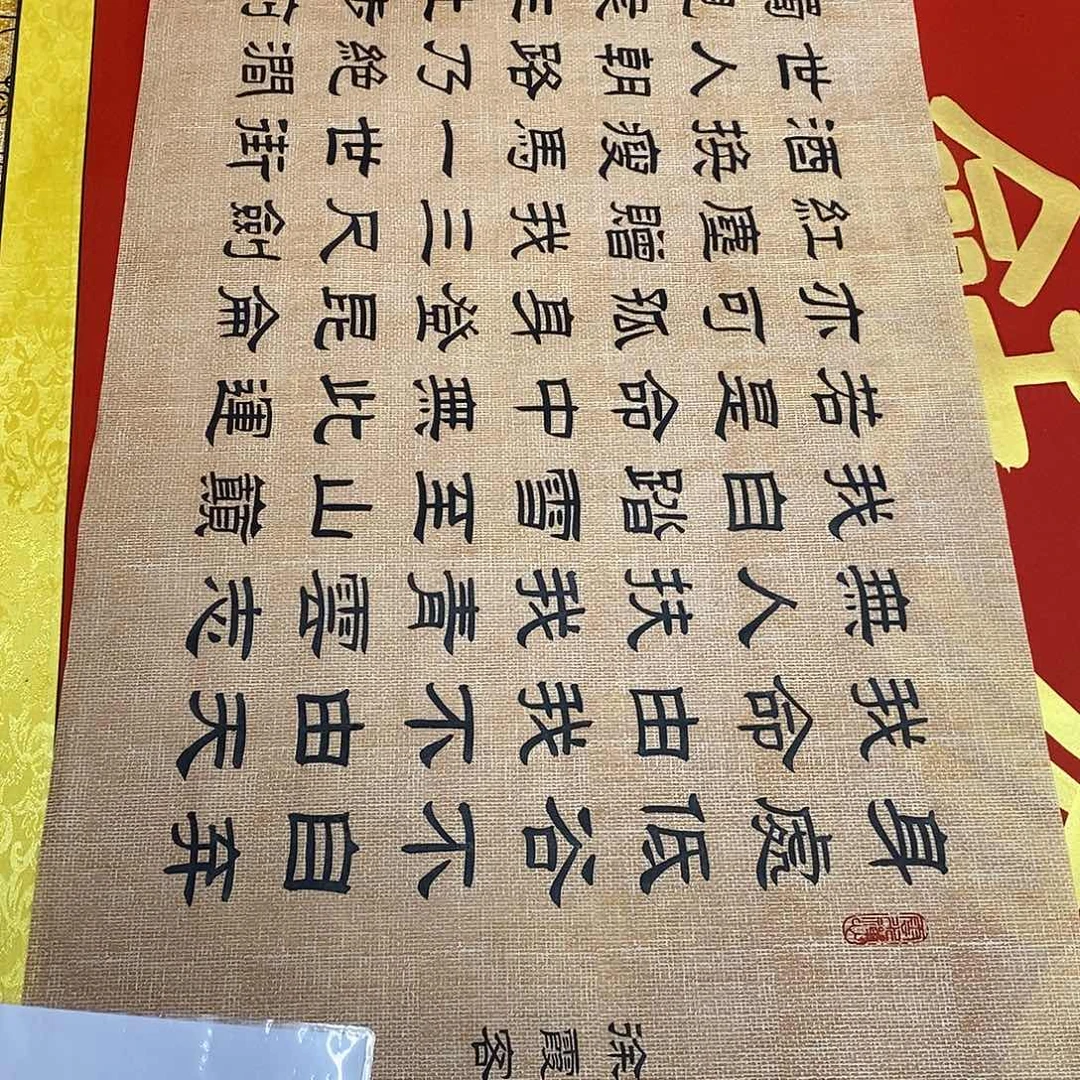 徐霞客
身處低谷不自弃
我命由我不由天
無人扶我青雲志
我自踏雪至山巔
若是命中無此運
亦可孤身登昆侖
紅塵贈我三尺劍
酒換瘦馬一世街
世人朝路乃絶澗